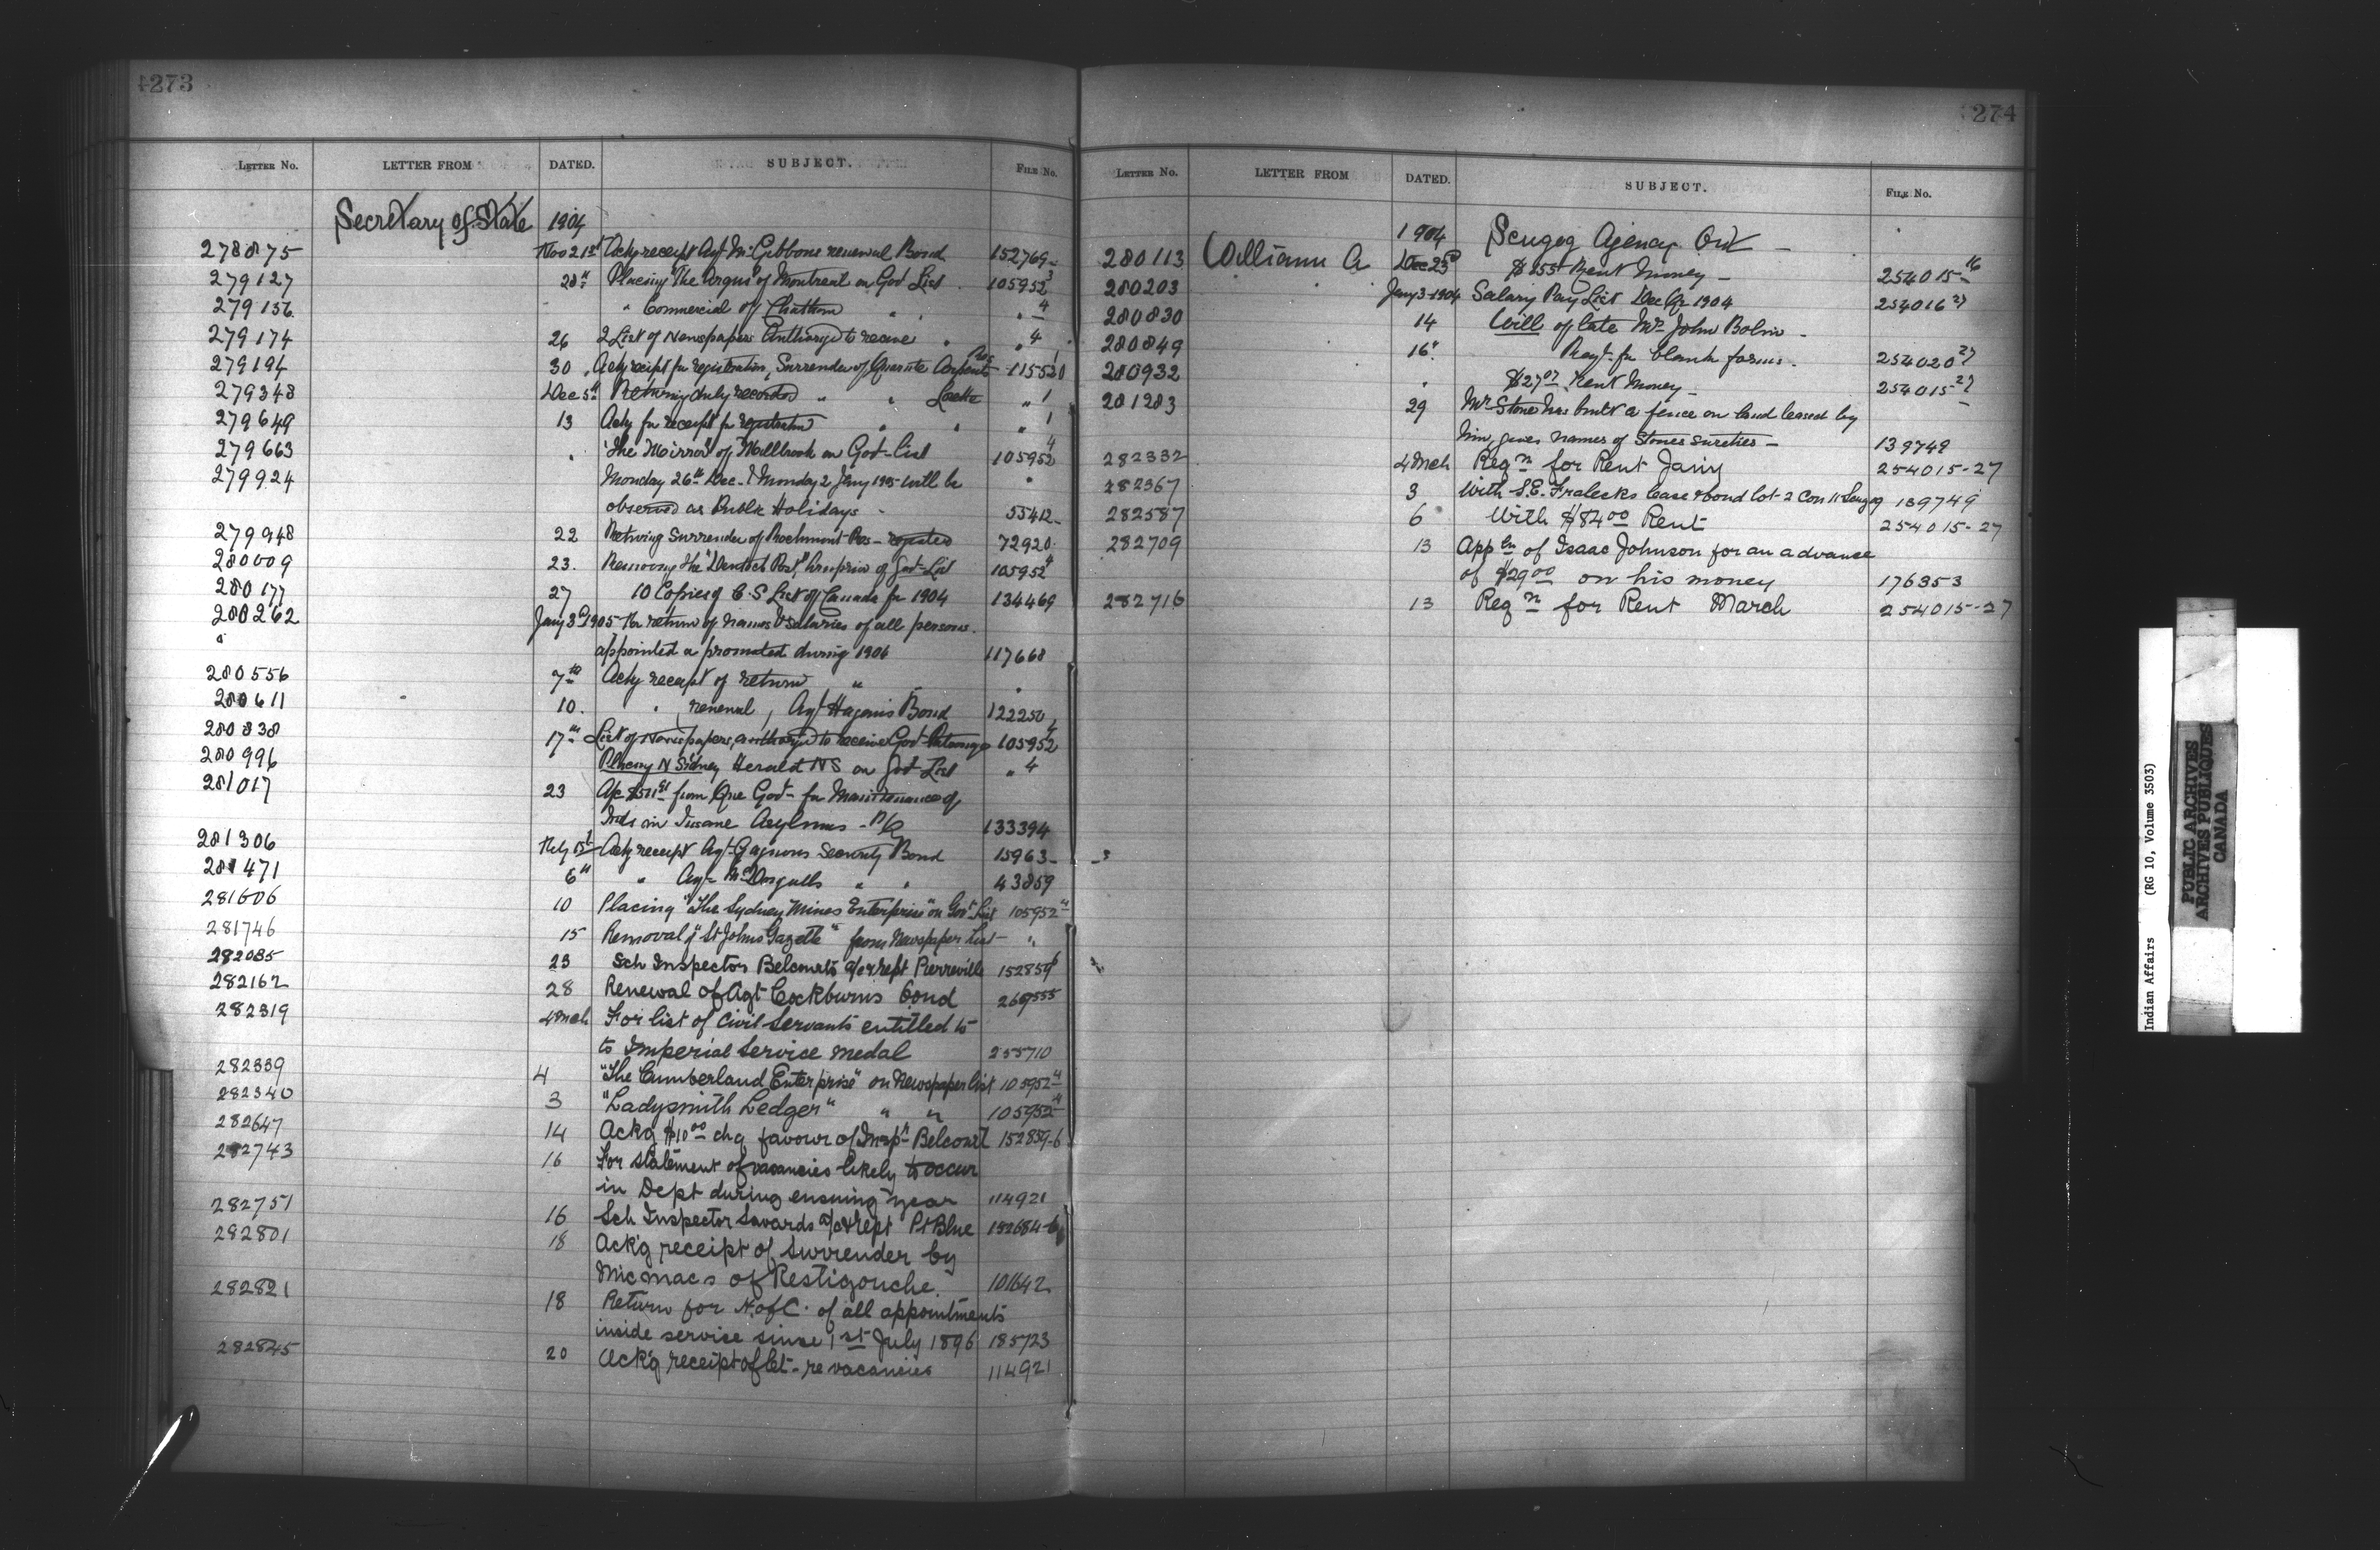 273
LETTER NO. LETTER FROM DATED. SUBJECT. FILE NO.
Secretary of State 1904
278875 Nov 21st Ackg receipt Agt McGibbons renewal Bond 152769
279127 28" Placing "The Argus" of Montreal on Govt List 105952 3
279156 " Commercial of Chatham " " " 4
279174 26 2 List of Newspapers Authorized to receive " " 4
279194 30 Ackg receipt for registration, Surrender of Quarante Arpents Res 115530 1
279348 Dec 5th Returning duly recorded " " Lorette " 1
279649 13 Ackg for receipt for registration " " " 1
279663 " "The Mirror" of Millbrook on Govt List 105952 4
279924 Monday 26th Dec. & Monday 2 Jany 1905 will be
observed as Public Holidays - " 55412
279948 22 Returning Surrender of Rochmont Res - 72920
280009 23. Removing the of Govt List 105952 4
280177 27 10 Copies of C.S List of Canada for 1904 134469
280262 Jany 3rd 1905 For return of names & salaries of all persons
" appointed or promoted during 1904 117668
280556 7th Ackg receipt of return " "
280611 10. " renewal, Agt Hagans Bond 122250
280838 17th List of Newspapers, authorized to receive Govt Patronage 105952 4
280996 Placing N Sidney Herald NS on Govt List " 4
281017 23 from Que Govt for Maintenance of
Inds in Insane Asylums - P/Q 133394
281306 Feby 1st Ackg receipt Agt Gagnons Security Bond 15963
281471 6th " Agt McDougalls " " 43859
281606 10 Placing "The Sydney Mines Enterprise" on Govt List 105952 4
281746 15 Removal of "St Johns Gazette" from Newspaper List - "
282085 23 Sch Inspector Belcourts a/c & rept Pierreville 152859 6
282162 28 Renewal of Agt Cockburns bond 269555
282319 4 Mch For list of Civil Servants entitled to
to Imperial Service medal 255710
282339 4 "The Cumberland Enterprise" on Newspaper list 105952 4
282340 3 "Ladysmith Ledger" " " 105952 4
282647 14 Ackg $10 00 chq favour of Insp" Belcourt 152859-6
282743 16 For statement of vacancies likely to occur
in Dept during ensuing year 114921
282751 16 Sch Inspector Savards a/c & rept Pt Blue 152684-6
282801 18 Ack'g receipt of Surrender by
Micmacs of Restigouche. 101642
282821 18 Return for H. of C. of all appointments
inside service since 1st July 1896 185723
282845 20 Ack'g receipt of let - re vacancies 114921
274
LETTER NO. LETTER FROM DATED. SUBJECT. FILE NO.
1904 Scugog Agency Ont -
280113 Williams A Dec 23rd $155 Rent Money - 254015-16
280203 " Jany 3-1904 Salary Pay List Dec Qr 1904 254016 27
280830 14 Will of late Mrs John Bolin -
280849 16" Reqt for blank forms. 254020 27
280932 " $27 07 Rent Money - 254015-27
281283 29 Mr Stone has built a fence on land leased by
him, gives names of Stones sureties - 139749
282332 4 Mch Reqn for Rent Jany 254015-27
282367 3 With S.E. Fralecks lease & bond lot 2 Con 11 Scugog 139749
282587 6 With $84 00 Rent 254015-27
282709 13 Appln of Isaac Johnson for an advance
of $29 00 on his money 176353
282716 13 Reqn for Rent March 254015-27
Indian Affairs (RG 10, Volume 3503)
PUBLIC ARCHIVES
ARCHIVES PUBLIQUES
CANADA